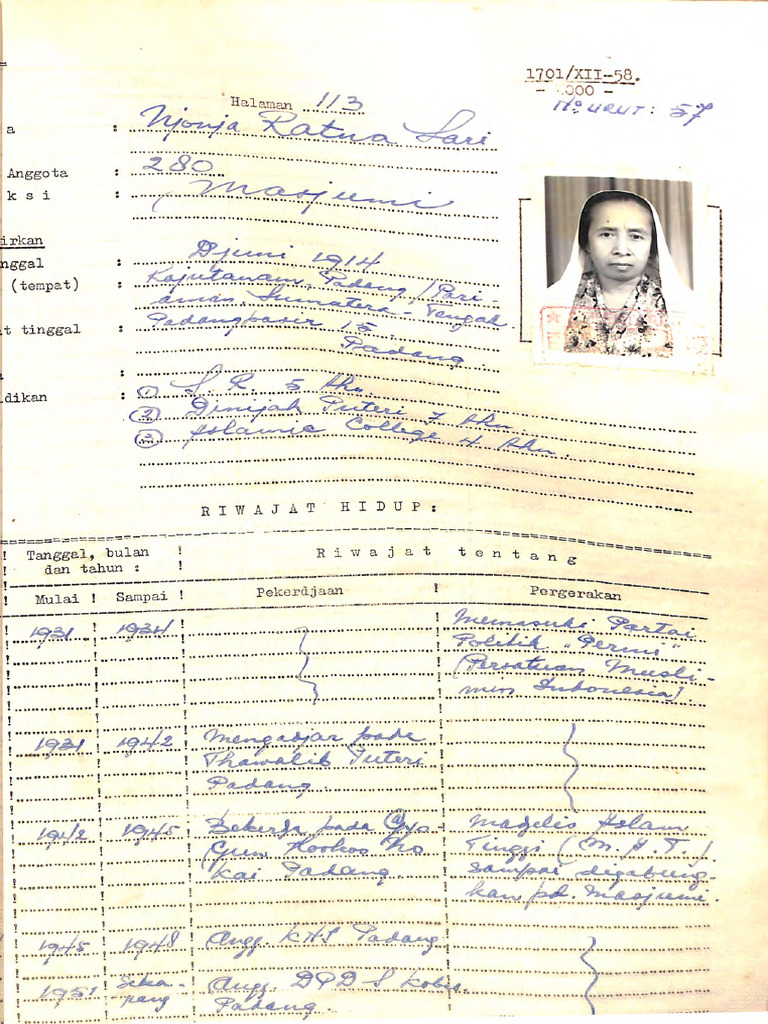 1701/XII-58.
- .000 -
Halaman 113
No urut: 57
a : Njonja Ratna Sari
Anggota : 280
k s i : Masjumi
irkan
nggal : Djuni 1914
(tempat) : Kajutanam, Padang/Pari-
aman, Sumatera-Tengah.
t tinggal : Padangpasir 15
Padang
dikan : (1) S. R. 5 thn.
(2) Dinijah Puteri 7 thn.
(3) Islamic College 4 thn.
RIWAJAT HIDUP:
Tanggal, bulan
dan tahun :
Riwajat tentang
Mulai Sampai Pekerdjaan Pergerakan
1931 1934 Memasuki Partai
Politik "Permi"
(Persatuan Musli-
min Indonesia).
1931 1942 Mengadjar pada
Thawalib Puteri
Padang.
1942 1945 Bekerdja pada Madjelis Islam
Hookoo Tinggi (M.I.T.)
Kai Padang. sampai digabung-
kan pd. Masjumi.
1945 1948 Angg. Padang
1951 Seka- Angg. DPDS
rang Padang.